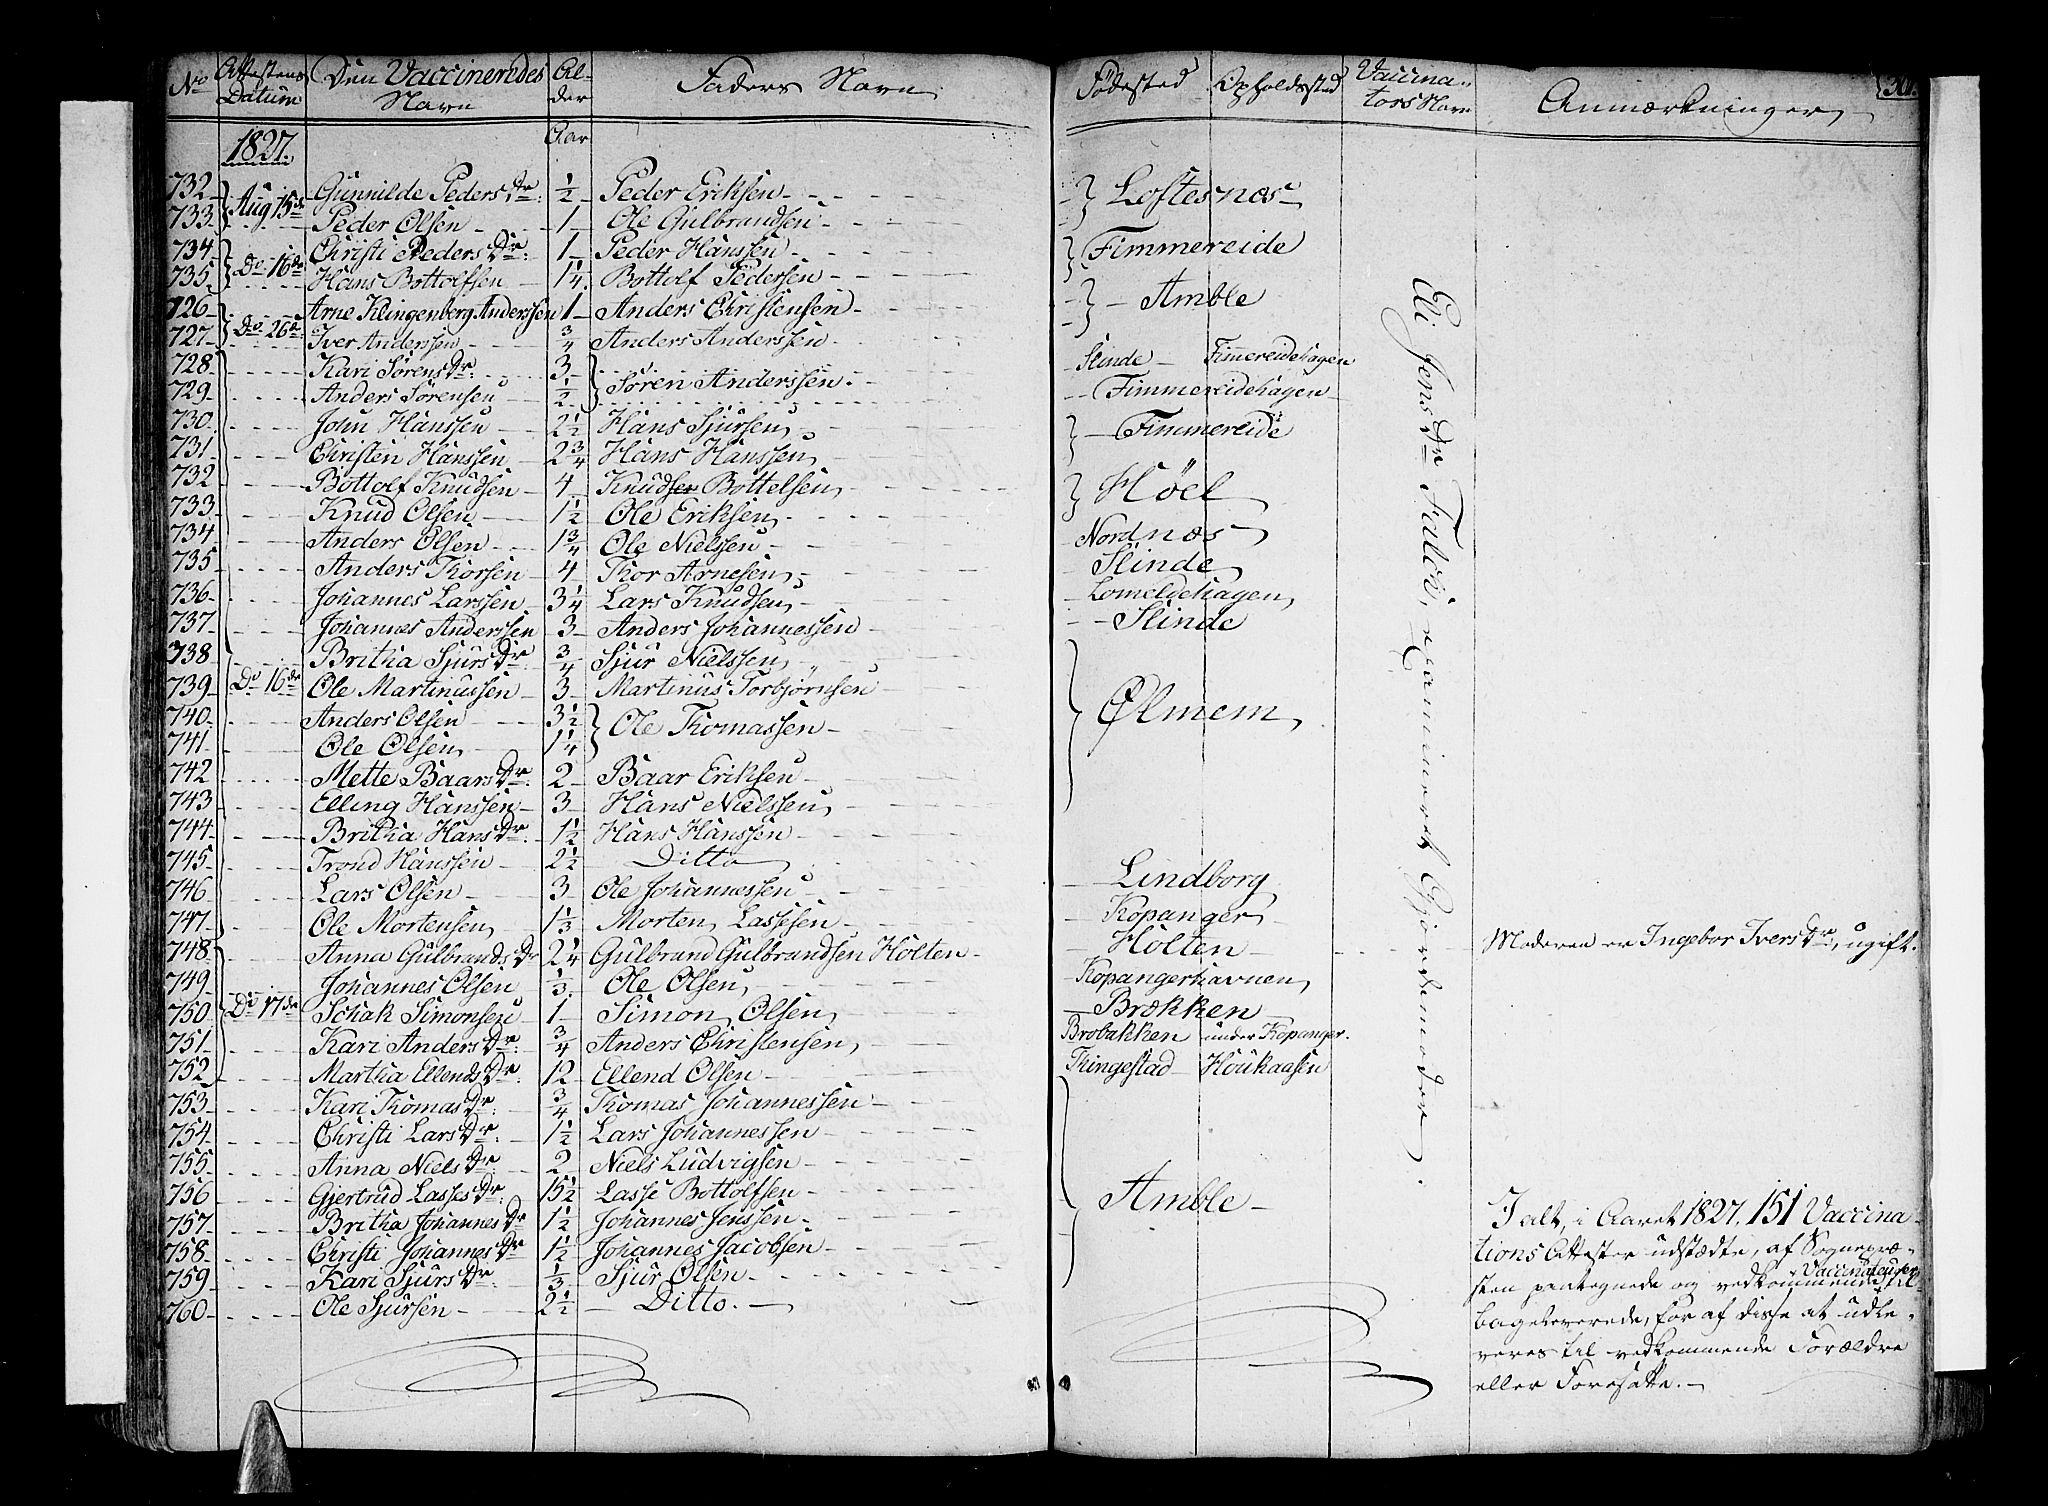 No Attestens Datum Den Vaccineredes Navn Alder Faders Navn Fødested Opholdssted Vaccinators Navn Anmærkninger
1827. Aar
732 Gunnilde Peders Dr: 1/2 Peder Eriksen Loftesnæs
733 Aug 15de Peder Olsen 1 Ole Gulbrandsen
734 Christi Peders Dr: 1 Peder Hanssen Fimmereide
735 Do 16de Hans Bottolfsen 1 1/4 Bottolf Pedersen
726 Arne Klingenberg Anderssen 1 Anders Christensen Amble
727 Do 26de Iver Anderssen 3/4 Anders Anderssen
728 Kari Sørens Dr: 3 Søren Anderssen Slinde Fimmereidehagen
729 Anders Sørensen 1/2 Fimmereidehagen
730 John Hanssen 2 1/2 Hans Sjursen Fimmereide
731 Christen Hanssen 2 3/4 Hans Hanssen
732 Bottolf Knudsen 4 Knudsen Bottelsen Høel
733 Knud Olsen 1 1/2 Ole Eriksen
734 Anders Olsen 1 3/4 Ole Nielssen Nordnæs
735 Anders Thorsen 4 Thor Arnesen Slinde
736 Johannes Larssen 3 1/4 Lars Knudsen Lomeldehagen
737 Johannes Anderssen 3 Anders Johannessen Slinde
738 Britha Sjurs Dr: 3/4 Sjur Nielssen
739 Do 16de Ole Martinussen 3 Martinus Torbjørnsen Ølmem
740 Anders Olsen 3 1/2 Ole Thomassen
741 Ole Olsen 1 1/4
742 Mette Baars Dr: 2 Baar Eriksen
743 Elling Hanssen 3 Hans Nielssen
744 Britha Hans Dr: 1 1/2 Hans Hanssen
745 Trond Hanssen 2 1/2 Ditto
746 Lars Olsen 3 Ole Johannessen Lindborg
747 Ole Mortensen 1 1/3 Morten Lassesen Kopanger
748 Anna Gulbrands Dr 2 1/4 Gulbrand Gulbrandsen Holten Holten Moderen er Ingebor Ivers Dr:, ugift.
749 Johannes Olsen 1/3 Ole Olsen Kopangerhavnen
750 Do 17de Schak Simonsen 1 Simon Olsen Brækken
751 Kari Anders Dr: 3/4 Anders Christensen Brobakken under Kopanger.
752 Martha Ellends Dr: 12 Ellend Olsen Thingestad Houkaasen
753 Kari Thomas Dr: 3/4 Thomas Johannessen
754 Christi Lars Dr: 1 1/2 Lars Johannessen
755 Anna Niels Dr 2 Niels Ludvigsen
756 Gjertrud Lasses Dr: 15 1/2 Lasse Bottolfsen Amble
757 Britha Johannes Dr 1 1/2 Johannes Jenssen
758 Christi Johannes Dr 1 1/2 Johannes Jacobsen
759 Kari Sjurs Dr 1/3 Sjur Olsen
760 Ole Sjursen 2 1/2 Ditto.
Eli Jens Dr Falch, examineret Gjordemoder.
I alt, i Aaret 1827, 151 Vaccina-
tions Attester udstædte, af Sognepræ-
sten paategnede og vedkommende Vaccinateurer til-
bageleverede, for af disse at udle-
veres til vedkommende Forældre
eller Foresatte.